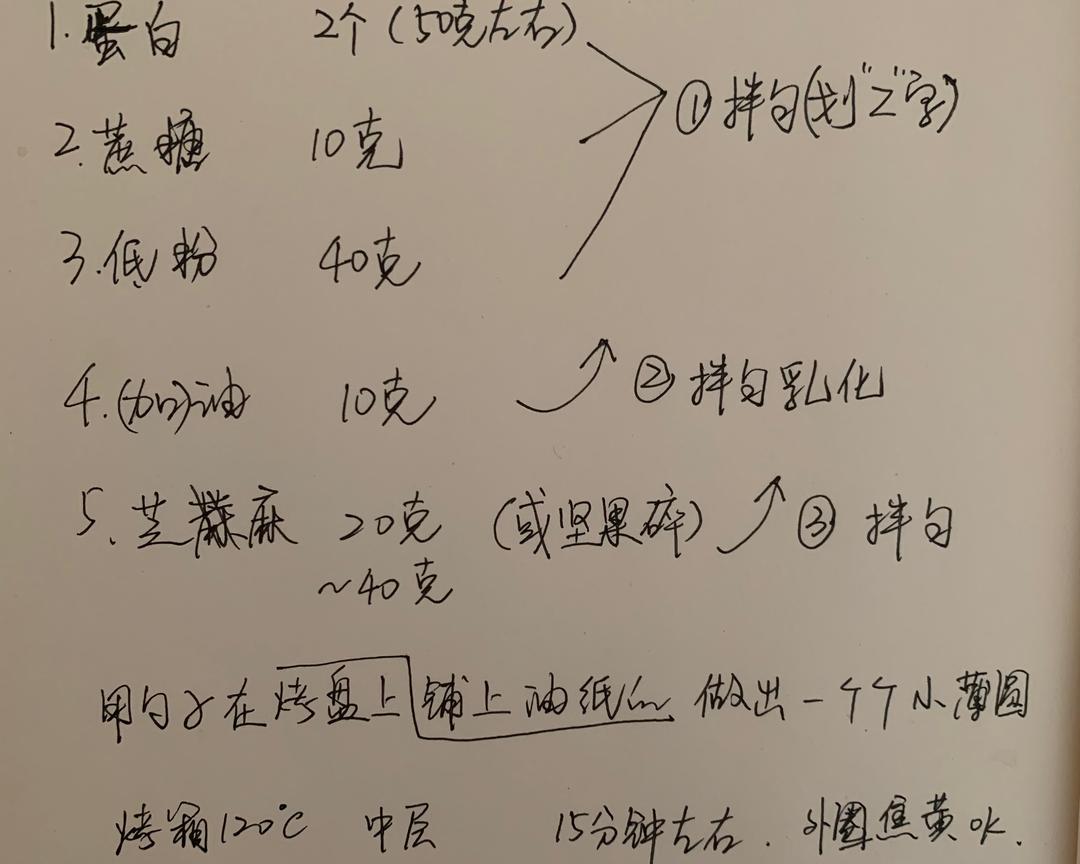 1. 蛋白 2个(50克左右)
① 拌匀(划"Z"字)
2. 蔗糖 10克
3. 低粉 40克
4. (加)油 10克 ② 拌匀乳化
5. 芝麻 20克 (或坚果碎) ③ 拌匀
~40克
用勺子在烤盘上铺上油纸 做出一个个小薄圆
烤箱120℃ 中层 15分钟左右. 外圈焦黄ok.